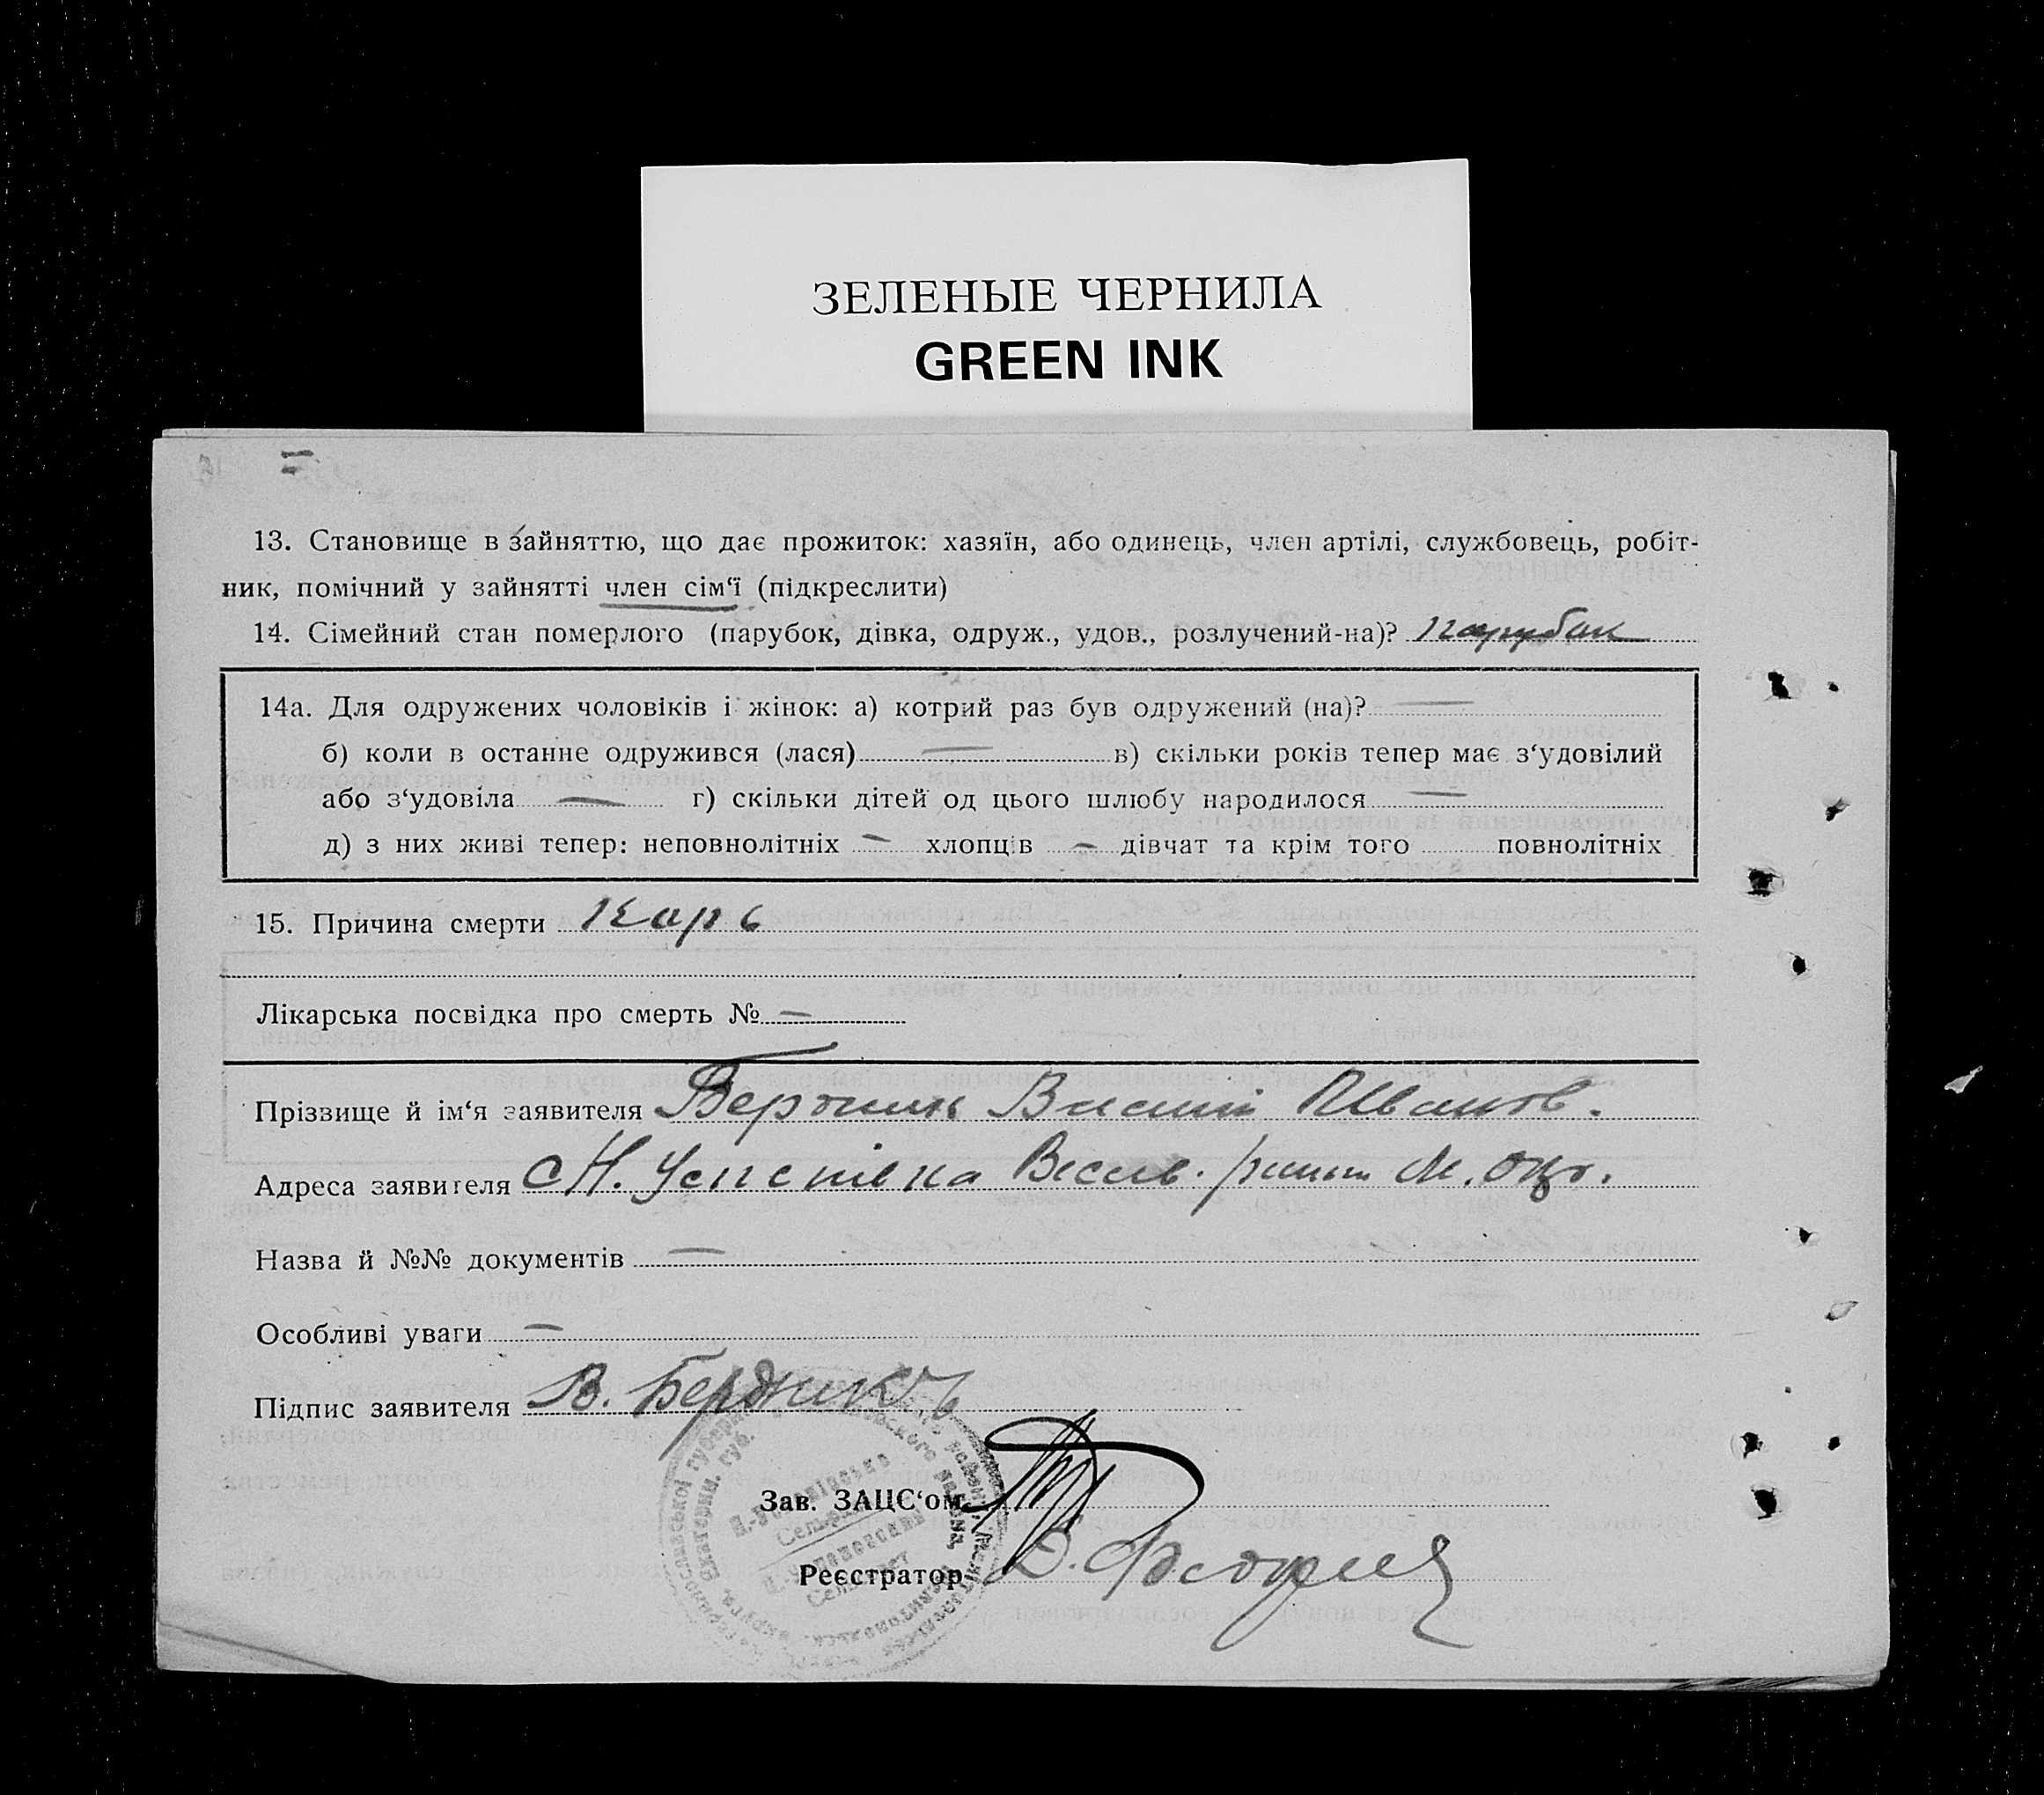 ЗЕЛЕНЫЕ ЧЕРНИЛА
GREEN INK
13. Становище в зайняттю, що дає прожиток: хазяїн, або одинець, член артілі, службовець, робіт-
ник, помічний у зайнятті член сім‘ї (підкреслити)
14. Сімейний стан померлого (парубок, дівка, одруж., удов., розлучений-на)? парубок
14а. Для одружених чоловіків і жінок: а) котрий раз був одружений (на)? —
б) коли в останнє одружився (лася) — в) скільки років тепер має з‘удовілий
або з‘удовіла — г) скільки дітей од цього шлюбу народилося —
д) з них живі тепер: неповнолітніх — хлопців — дівчат та крім того повнолітніх
15. Причина смерти Карь
Лікарська посвідка про смерть № —
Прізвище й ім‘я заявителя Бердник Иванов.
Адреса заявителя с Н. Успенівка Весел. району М. окр.
Назва й №№ документів —
Особливі уваги —
Підпис заявителя В. Бердник
Зав. ЗАЦС‘ом
Реєстратор
Сельрада
Сельсовет